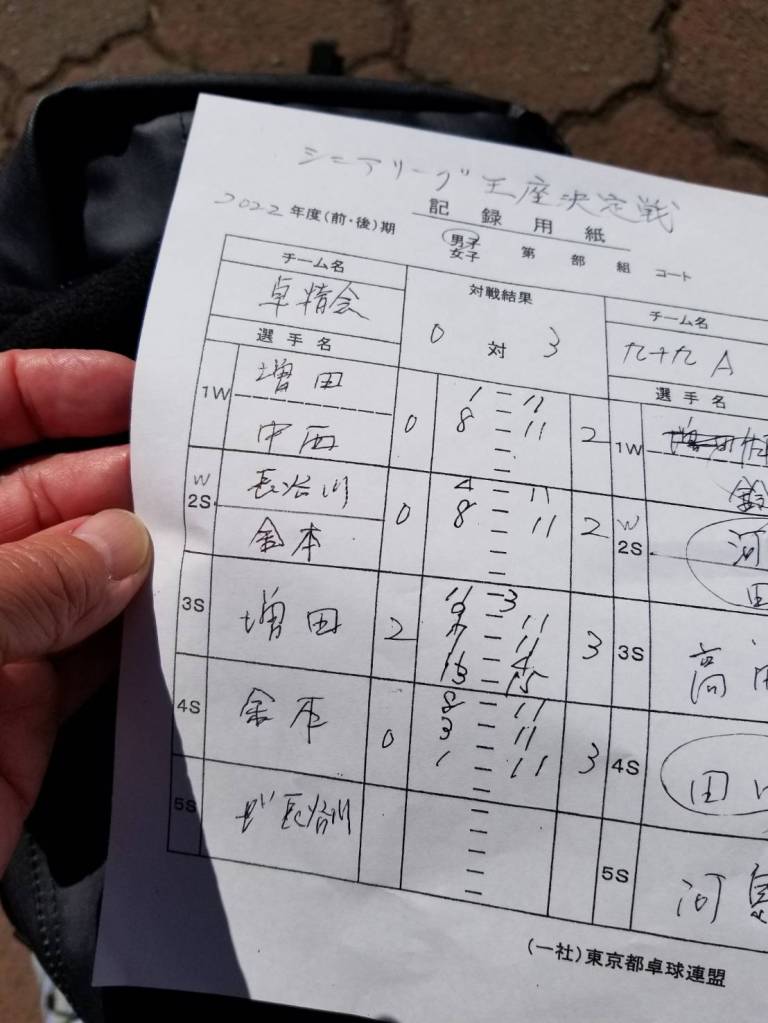 シニアリーグ王座決定戦
2022年度(前・後)期
記録用紙
男子
女子
第 部 組 コート
チーム名
卓精会
対戦結果
0 対 3
チーム名
九十九A
選手名
選手名
1W
増田
中西
0
1 - 11
8 - 11
2
1W
W
2S
長谷川
金本
0
4 - 11
8 - 11
2
W
2S
河
田
3S
増田
2
3
3S
高
4S
金本
0
8 - 11
3 - 11
1 - 11
3
4S
田
5S
長谷川
5S
河
(一社)東京都卓球連盟